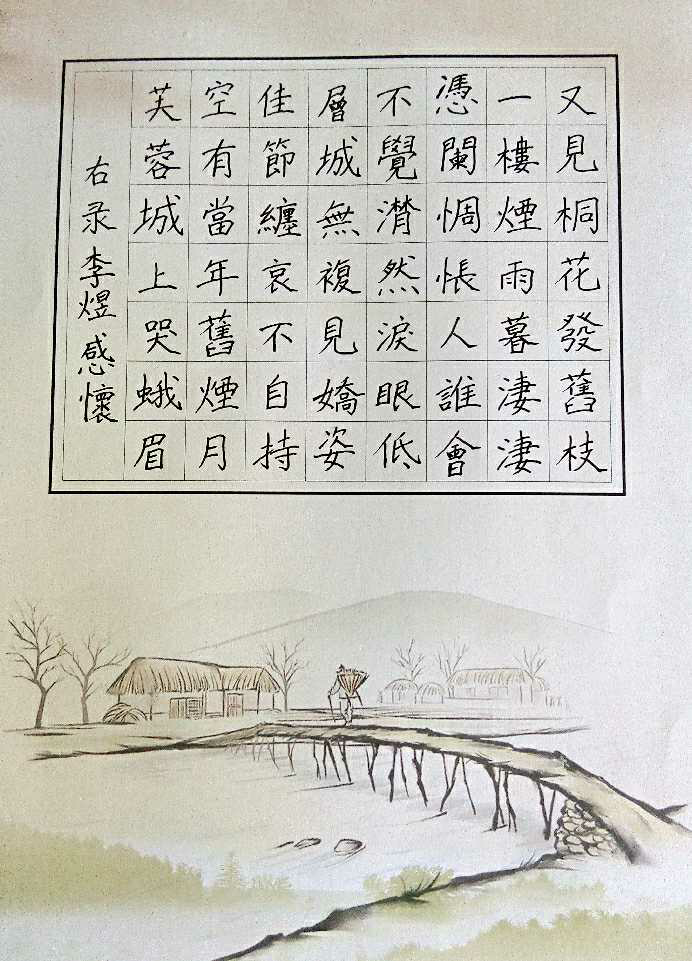 又見桐花發舊枝
一樓煙雨暮淒淒
憑闌惆悵人誰會
不覺潸然淚眼低
層城無複見嬌姿
佳節纏哀不自持
空有當年舊煙月
芙蓉城上哭蛾眉
右录李煜感懷